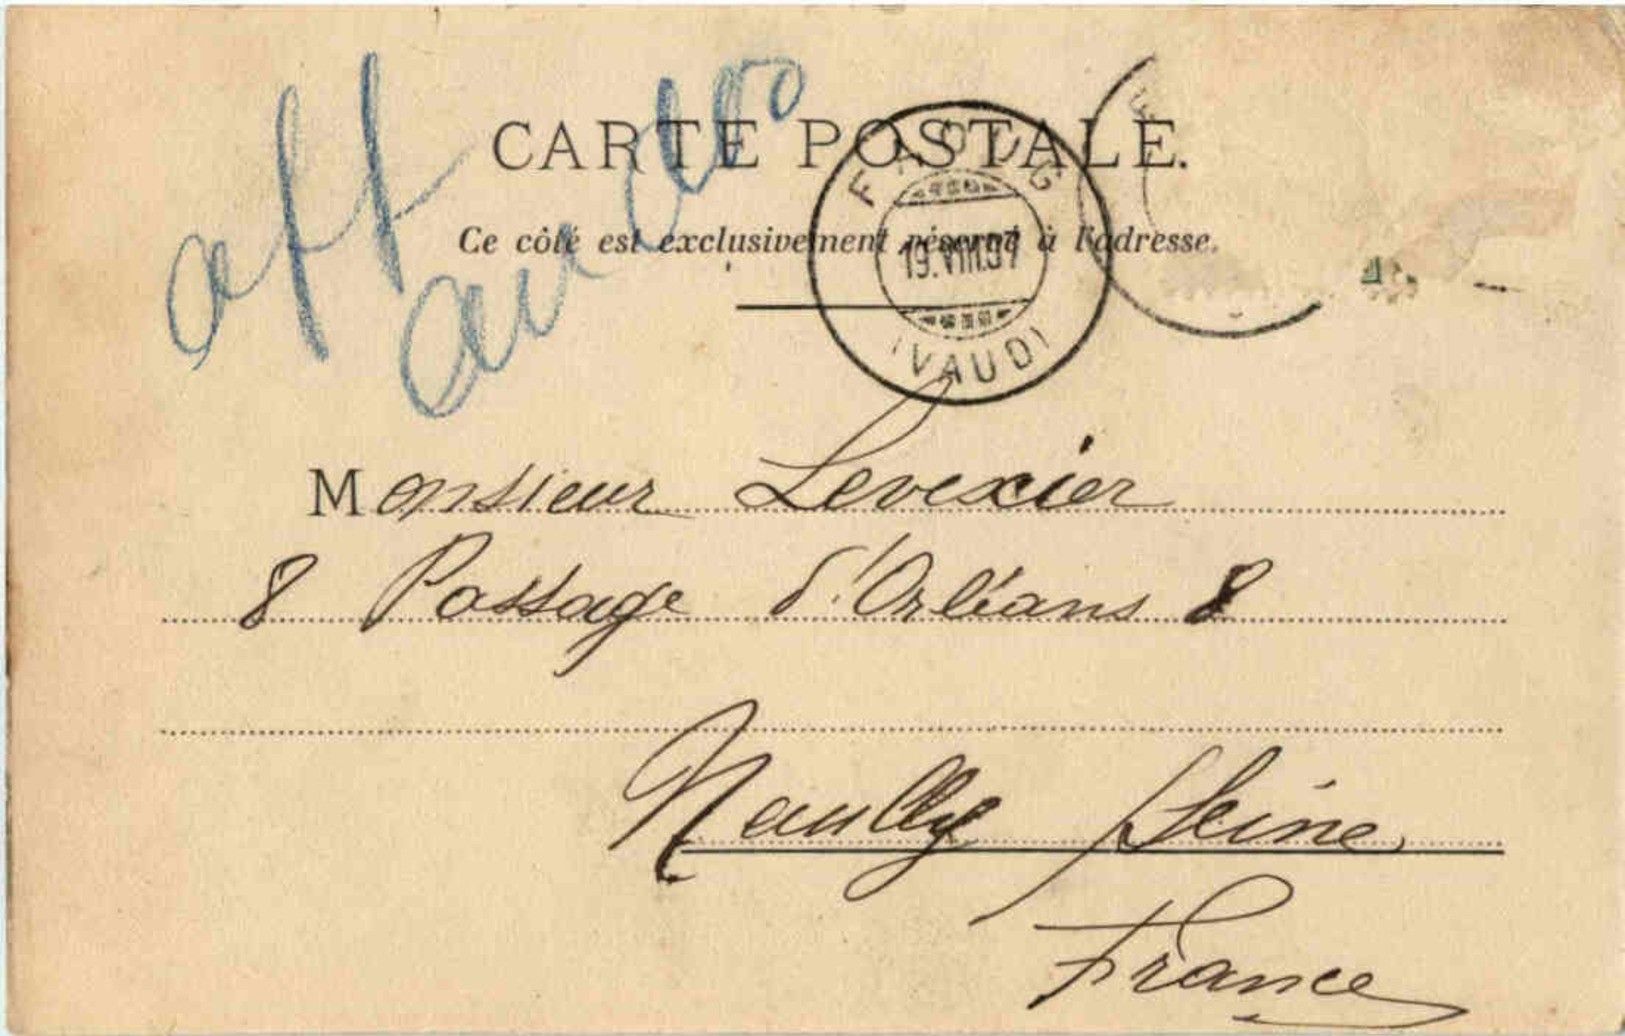 CARTE POSTALE.
Ce côté est exclusivement réservé à l'adresse.
FAOUG
19.VIII.07
(VAUD)
Monsieur Levexier
8 Passage d'Orléans 8
Neuilly s/Seine
France